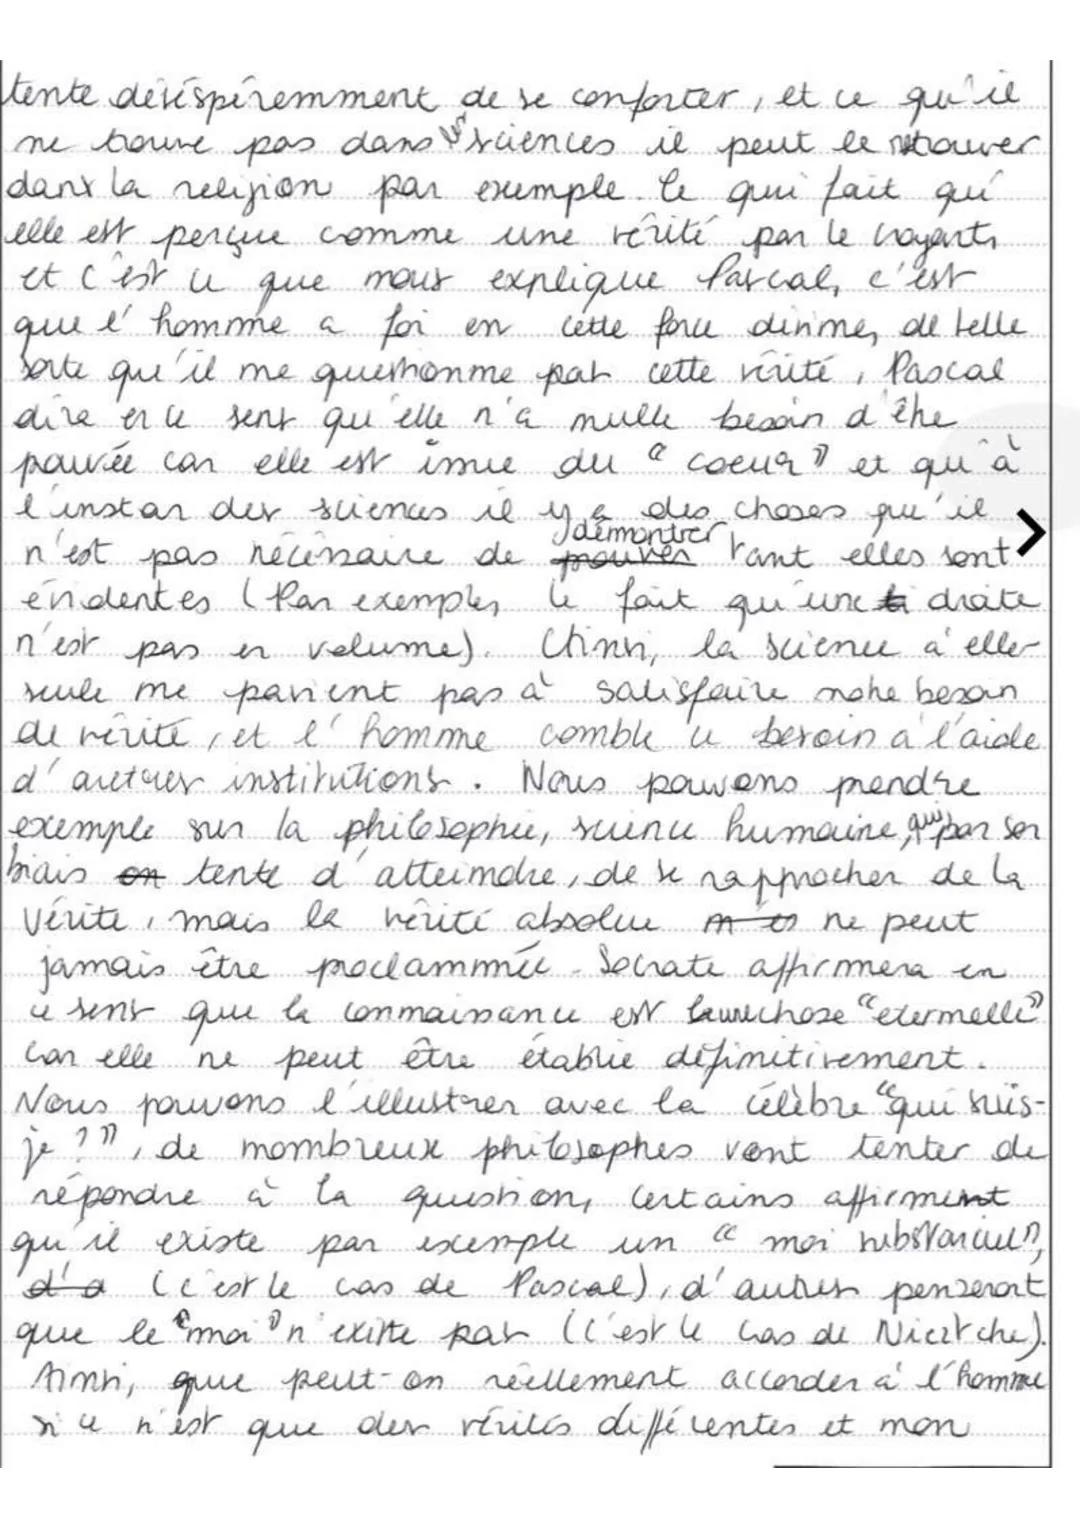 tente déséspéremment de se conforter, et ce qu'il
ne trouve pas dans les sciences il peut le retrouver
dans la religion par exemple. Ce qui fait qu'
elle est perçue comme une vérité par le croyants
et c'est ce que nous explique Pascal, c'est
que l'homme a foi en cette force divine, de telle
sorte qu'il ne questionne pas cette vérité, Pascal
dire en ce sens qu'elle n'a nulle besoin d'être
pouvée car elle est imue du "coeur" et qu'à
l'instar des sciences il y a des choses qu'il
n'est pas nécéssaire de démontrer tant elles sont
évidentes (Par exemple, le fait qu'une droite
n'est pas en volume). Ainsi, la science à elle-
seule ne parvient pas à satisfaire notre besoin
de vérité, et l'homme comble ce besoin à l'aide
d'autres institutions. Nous pouvons prendre
exemple sur la philosophie, science humaine, qui par son
biais tente d'atteindre, de se rapprocher de la
vérité, mais la vérité absolue ne peut
jamais être proclammée. Socrate affirmera en
ce sens que la connaissance est chose "eternelle"
car elle ne peut être établie définitivement.
Nous pouvons l'illustrer avec la célèbre "qui suis-
je ?", de nombreux philosophes vont tenter de
répondre à la question, certains affirment
qu'il existe par exemple un "moi substanciel",
(c'est le cas de Pascal), d'autres penseront
que le "moi" n'existe pas (c'est le cas de Nieztche).
Ainsi, que peut-on réellement accorder à l'homme
si ce n'est que des vérités différentes et non